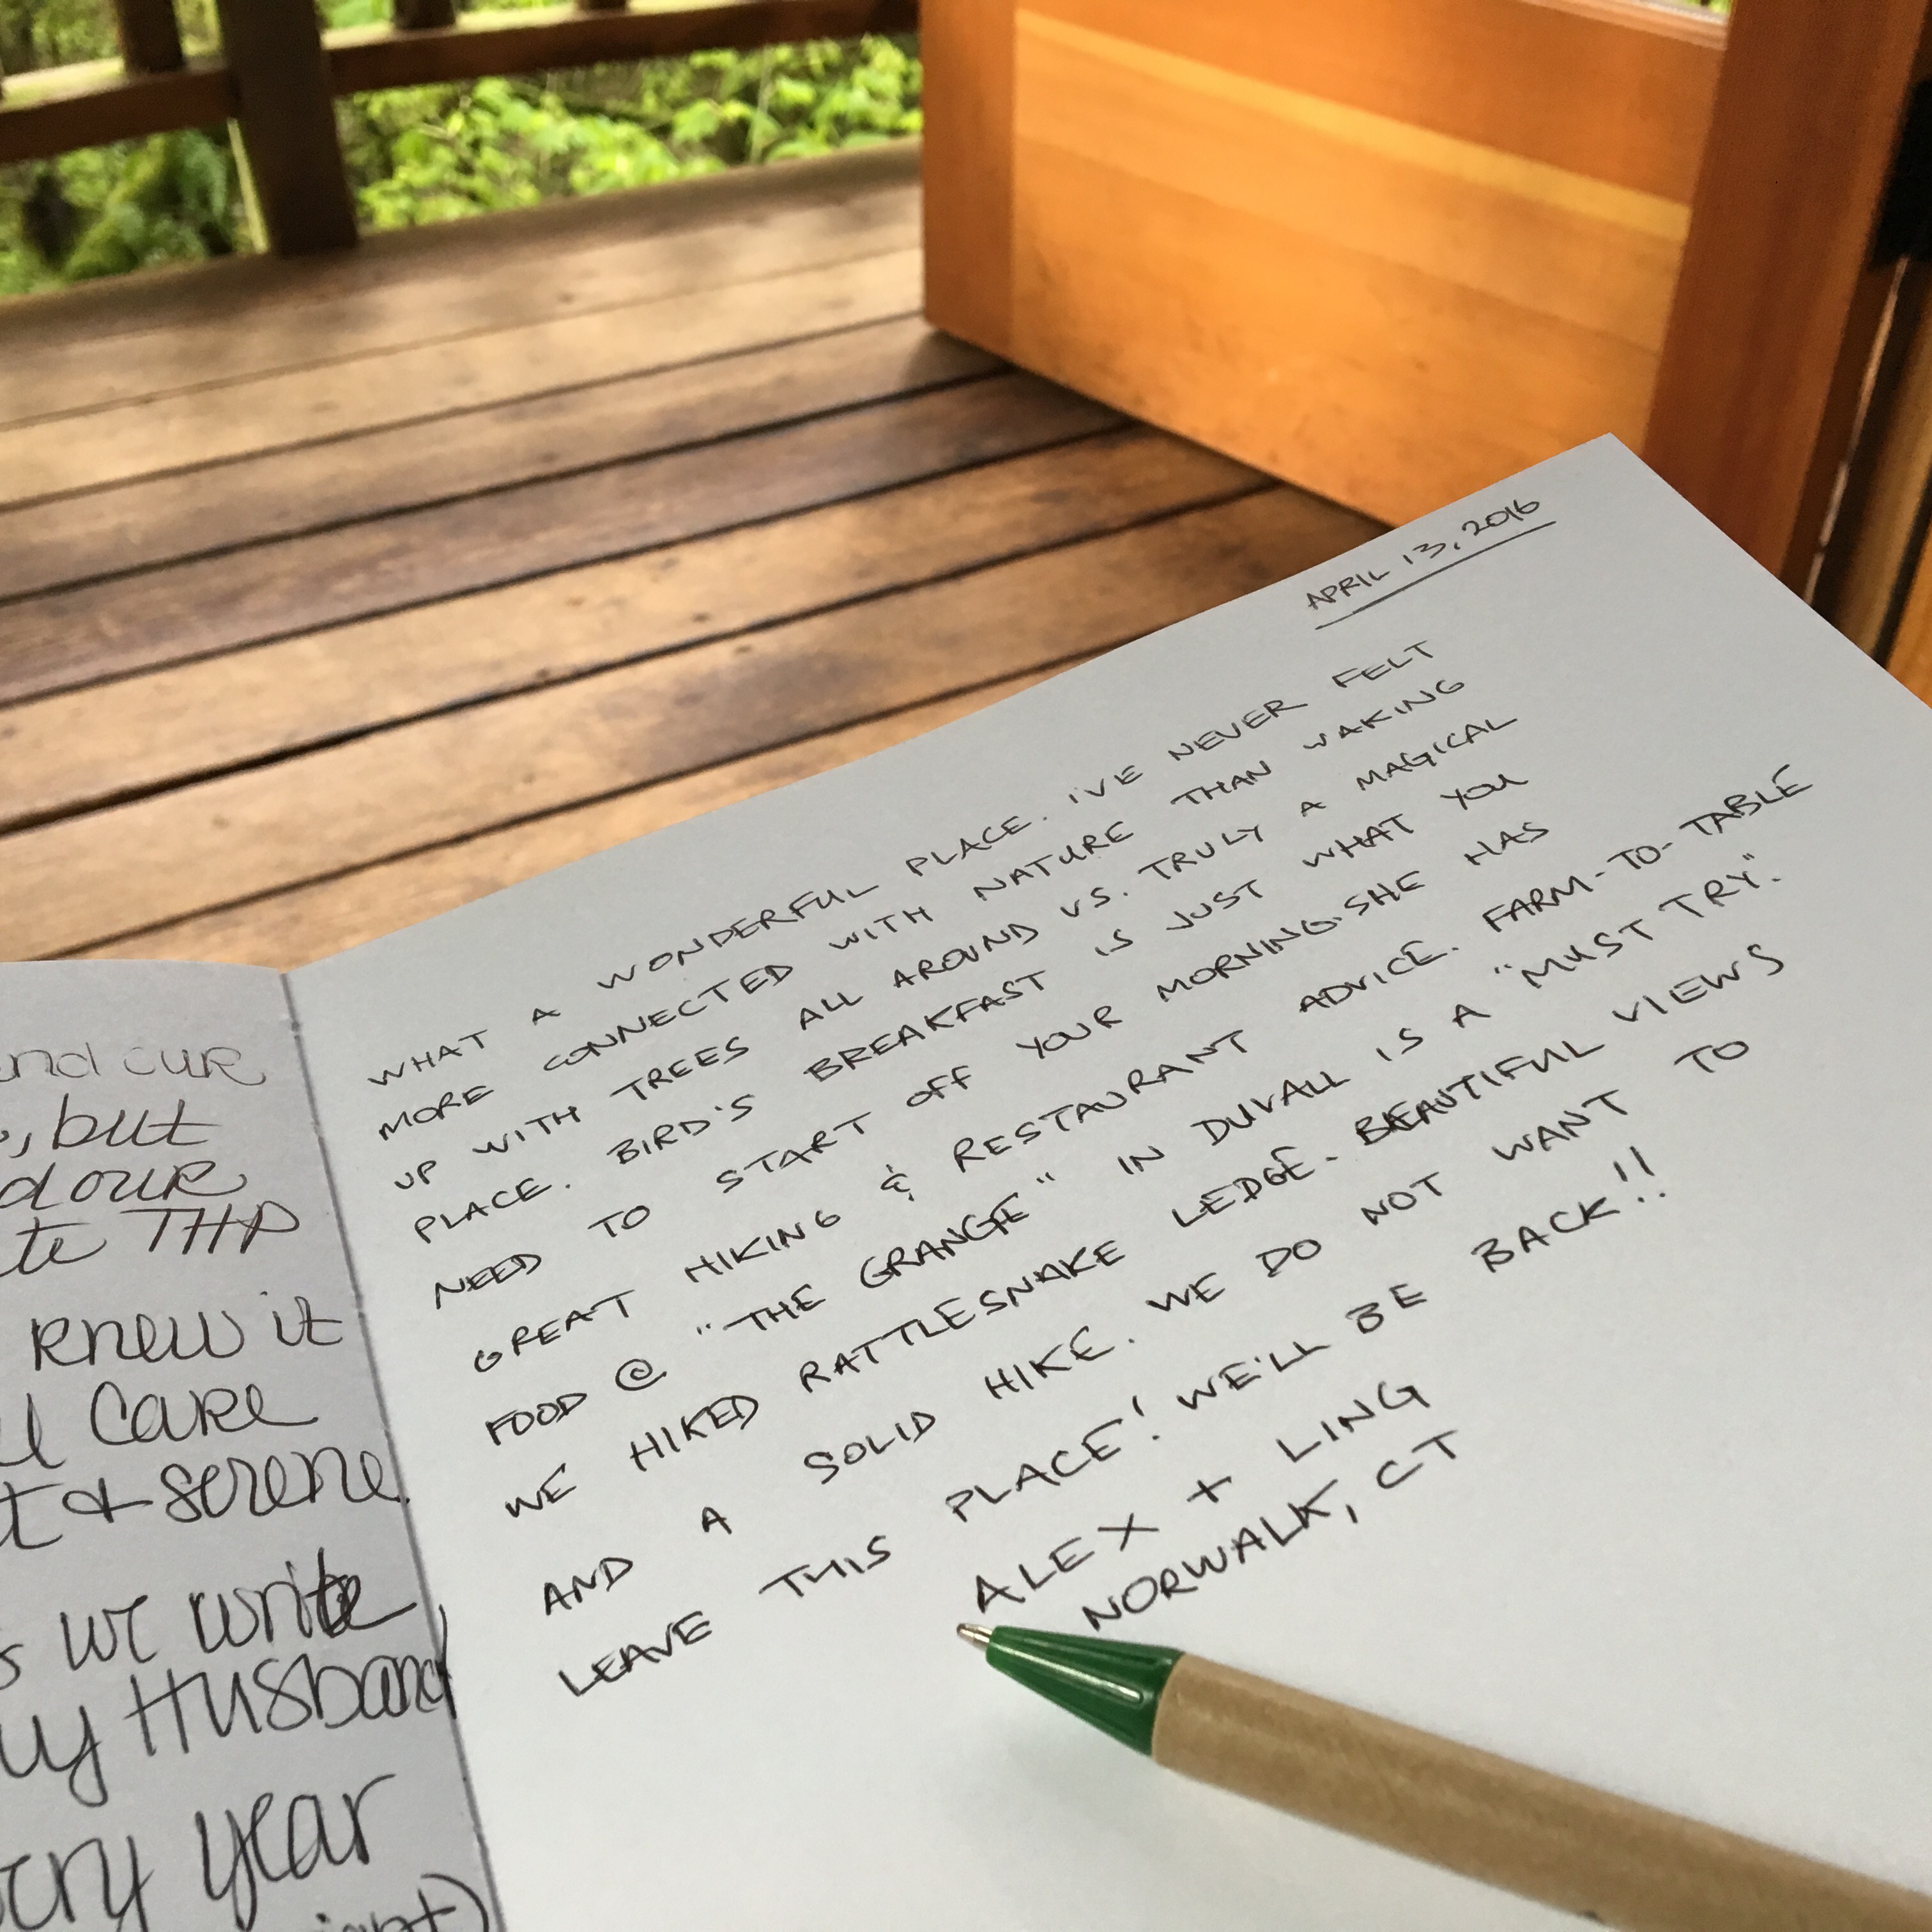 end our
, but
d our
te THP
knew it
Care
t & serene
we write
my Husband
year
APRIL 13, 2016
WHAT A WONDERFUL PLACE. I'VE NEVER FELT
MORE CONNECTED WITH NATURE THAN WAKING
UP WITH TREES ALL AROUND US. TRULY A MAGICAL
PLACE. BIRD'S BREAKFAST IS JUST WHAT YOU
NEED TO START OFF YOUR MORNING. SHE HAS
GREAT HIKING & RESTAURANT ADVICE. FARM-TO-TABLE
FOOD @ "THE GRANGE" IN DUVALL IS A "MUST TRY".
WE HIKED RATTLESNAKE LEDGE. BEAUTIFUL VIEWS
AND A SOLID HIKE. WE DO NOT WANT TO
LEAVE THIS PLACE! WE'LL BE BACK!!
ALEX + LING
NORWALK, CT